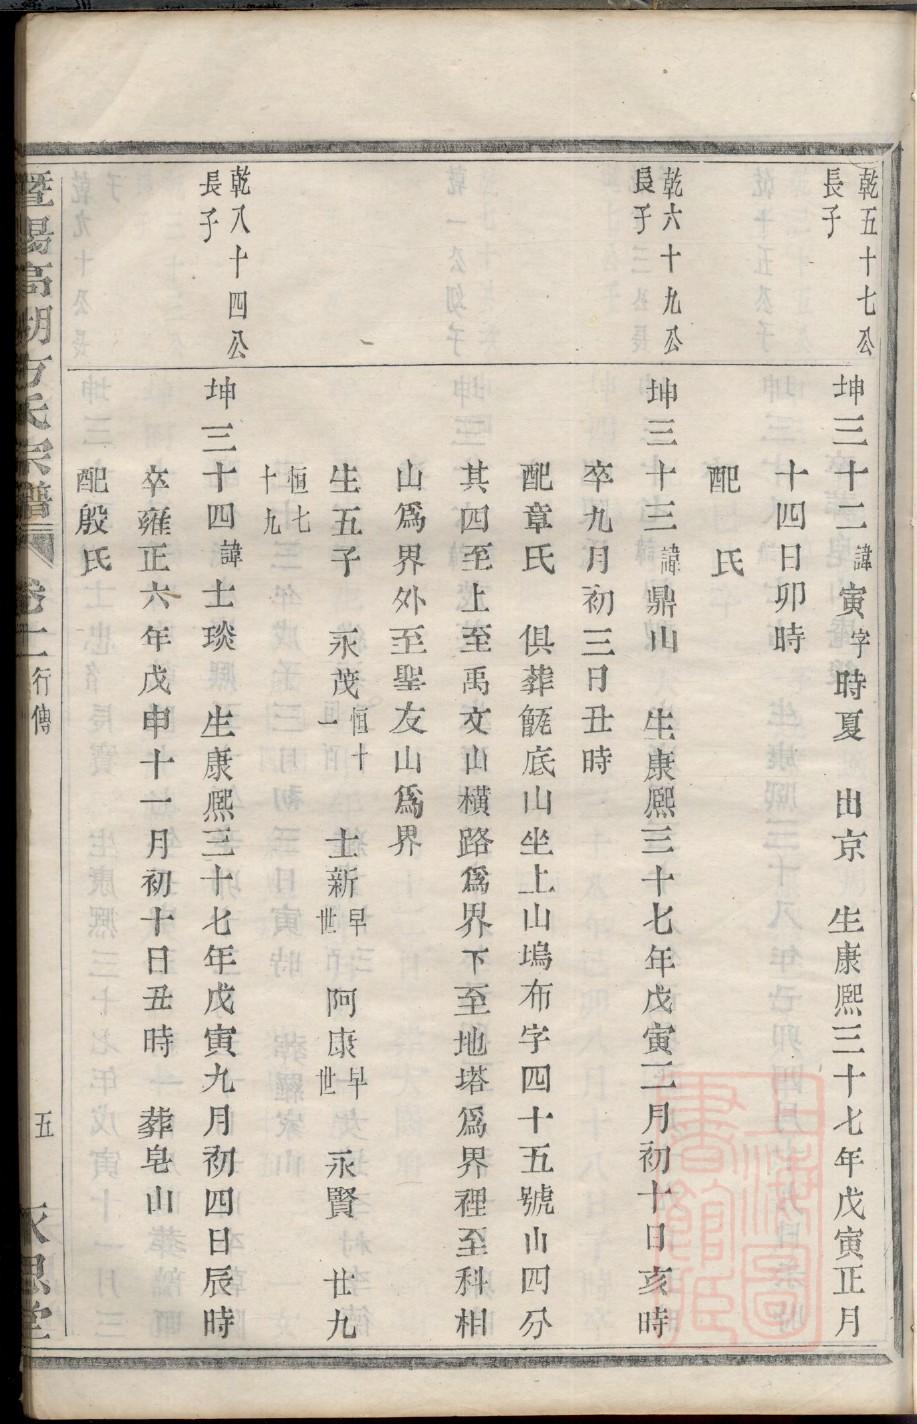 乾五十七公
長子
坤三十二諱寅字時夏　出京　生康熙三十七年戊寅正月
十四日卯時
配　氏
乾六十九公
長子
坤三十三諱鼎山　生康熙三十七年戊寅二月初十日亥時
卒九月初三日丑時
配章氏　俱葬甔底山坐上山塢布字四十五號山四分
其四至上至禹文山橫路爲界下至地塔爲界裡至科相
山爲界外至聖友山爲界
生五子　永茂恒十一　士新早世　阿康早世　永賢　廿九
恒七十九
乾八十四公
長子
坤三十四諱士琰　生康熙三十七年戊寅九月初四日辰時
卒雍正六年戊申十一月初十日丑時　葬皂山
配殷氏
暨陽高湖方氏宗譜　卷十一行傳　五　永思堂